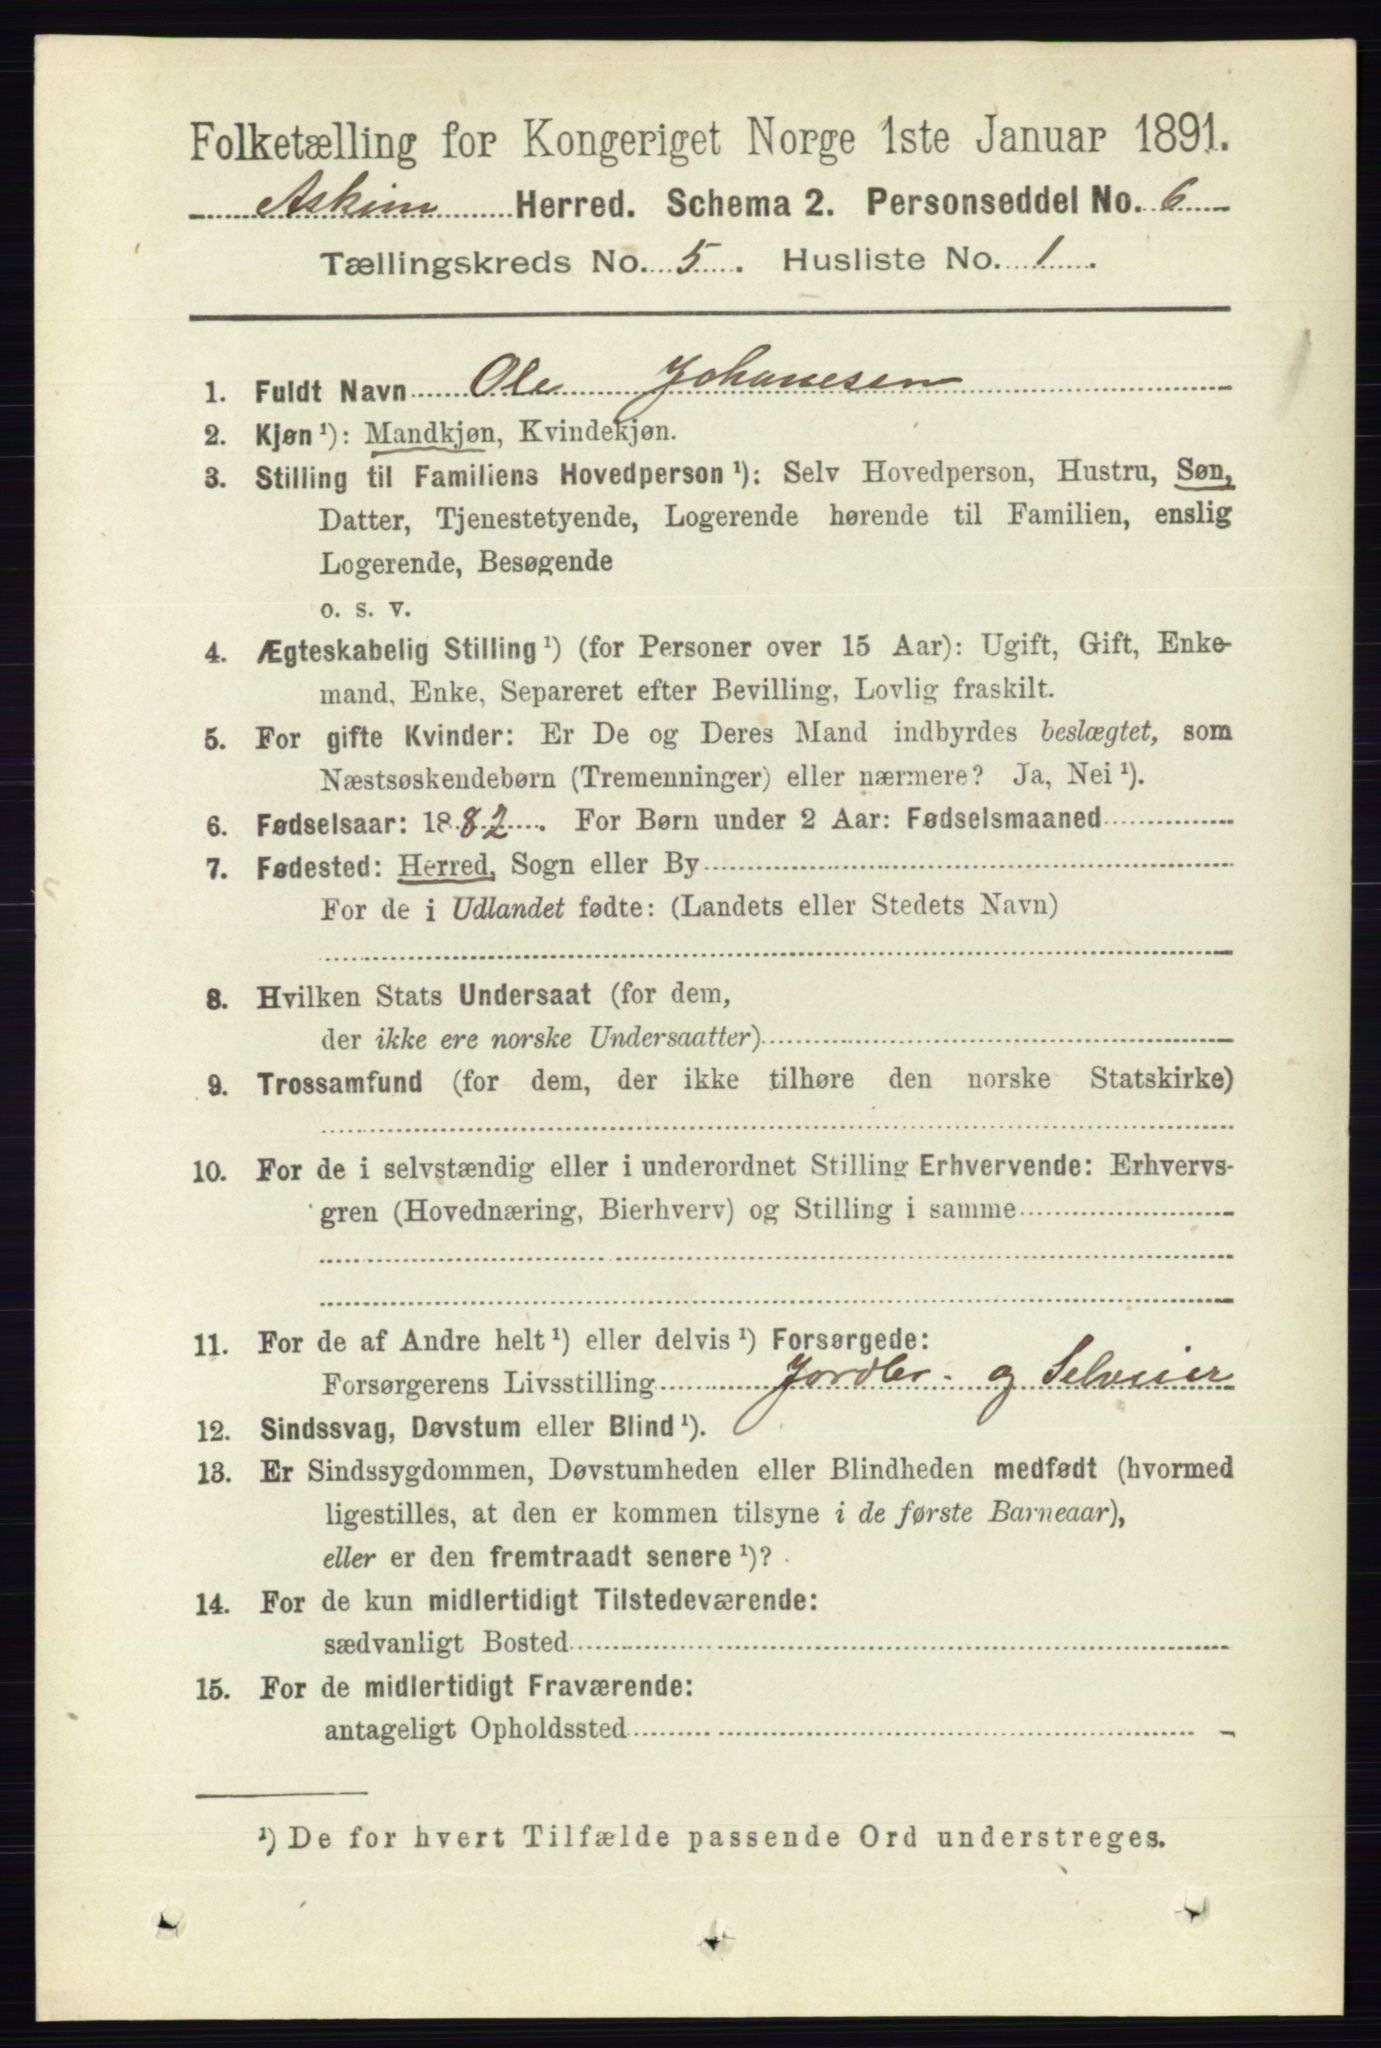 Folketælling for Kongeriget Norge 1ste Januar 1891.
Askim Herred. Schema 2. Personseddel No. 6
Tællingskreds No. 5. Husliste No. 1.
1. Fuldt Navn Ole Johanesen
2. Kjøn ¹): Mandkjøn, Kvindekjøn.
3. Stilling til Familiens Hovedperson ¹): Selv Hovedperson, Hustru, Søn,
Datter, Tjenestetyende, Logerende hørende til Familien, enslig
Logerende, Besøgende
o. s. v.
4. Ægteskabelig Stilling ¹) (for Personer over 15 Aar): Ugift, Gift, Enke-
mand, Enke, Separeret efter Bevilling, Lovlig fraskilt.
5. For gifte Kvinder: Er De og Deres Mand indbyrdes beslægtet, som
Næstsøskendebørn (Tremenninger) eller nærmere? Ja, Nei ¹).
6. Fødselsaar: 1882. For Børn under 2 Aar: Fødselsmaaned
7. Fødested: Herred, Sogn eller By
For de i Udlandet fødte: (Landets eller Stedets Navn)
8. Hvilken Stats Undersaat (for dem,
der ikke ere norske Undersaatter)
9. Trossamfund (for dem, der ikke tilhøre den norske Statskirke)
10. For de i selvstændig eller i underordnet Stilling Erhvervende: Erhvervs-
gren (Hovednæring, Bierhverv) og Stilling i samme
11. For de af Andre helt ¹) eller delvis ¹) Forsørgede:
Forsørgerens Livsstilling Jordbr. og Selveier
12. Sindssvag, Døvstum eller Blind ¹).
13. Er Sindssygdommen, Døvstumheden eller Blindheden medfødt (hvormed
ligestilles, at den er kommen tilsyne i de første Barneaar),
eller er den fremtraadt senere ¹)?
14. For de kun midlertidigt Tilstedeværende:
sædvanligt Bosted
15. For de midlertidigt Fraværende:
antageligt Opholdssted
¹) De for hvert Tilfælde passende Ord understreges.